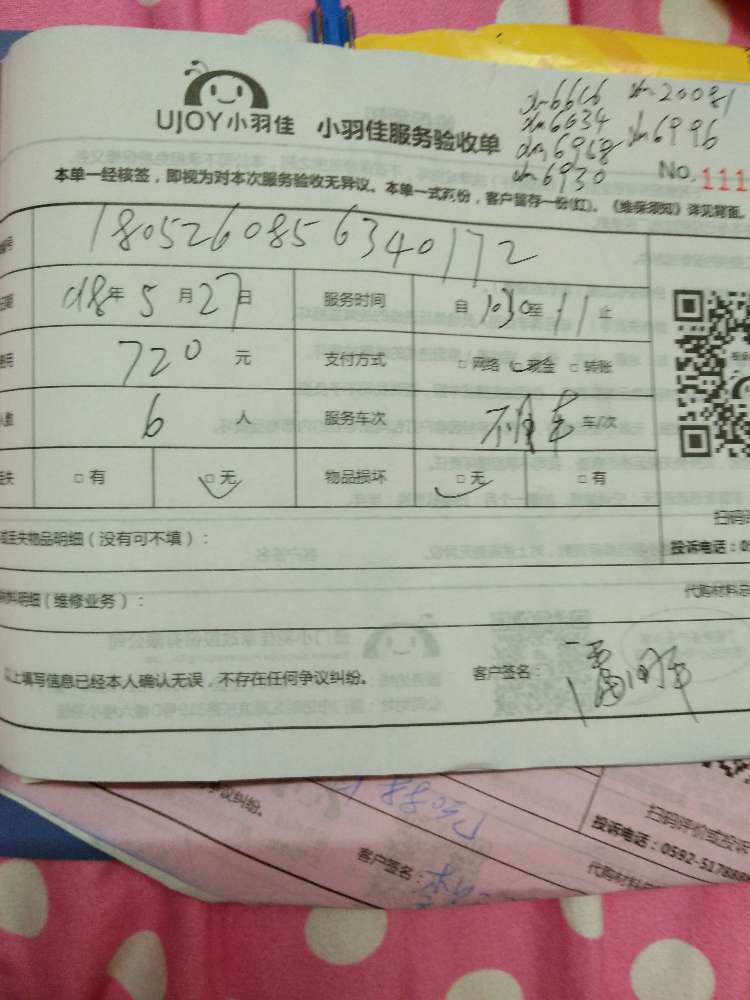 UJOY小羽佳 小羽佳服务验收单
xm6616 xm20081
xm6634 xm6996
xm6968
xm6930
No. 111
本单一经核签，即视为对本次服务验收无异议。本单一式两份，客户留存一份(红)。《维保须知》详见背面。
1805260856340172
018年5月27日 服务时间 自1030至11止
720元 支付方式 □网络 □现金 □转账
6人 服务车次 班车 车/次
□有 □无 物品损坏 □无 □有
丢失物品明细（没有可不填）：
扫码评
投诉电话：05
料明细（维修业务）：
代购材料总
以上填写信息已经本人确认无误，不存在任何争议纠纷。 客户签名：
争议纠纷。
客户签名：
扫码评价或投诉
投诉电话：0592-5178888
代购材料总